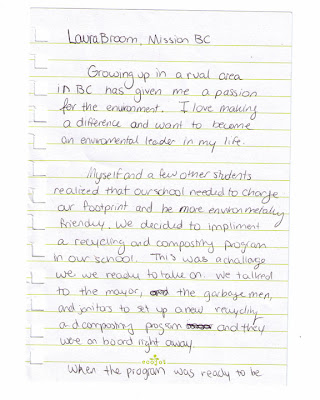 Laura Broom, Mission BC
Growing up in a rual area
in BC has given me a passion
for the environment. I love making
a difference and want to become
an enviromental leader in my life.
Myself and a few other students
realized that our school needed to change
our footprint and be more environmetally
friendly. We decided to impliment
a recycling and composting program
in our school. This was a challenge
we we ready to take on. We talked
to the mayor, the garbage men,
and janitors to set up a new recycling
and composting program and they
were on board right away.
When the program was ready to be